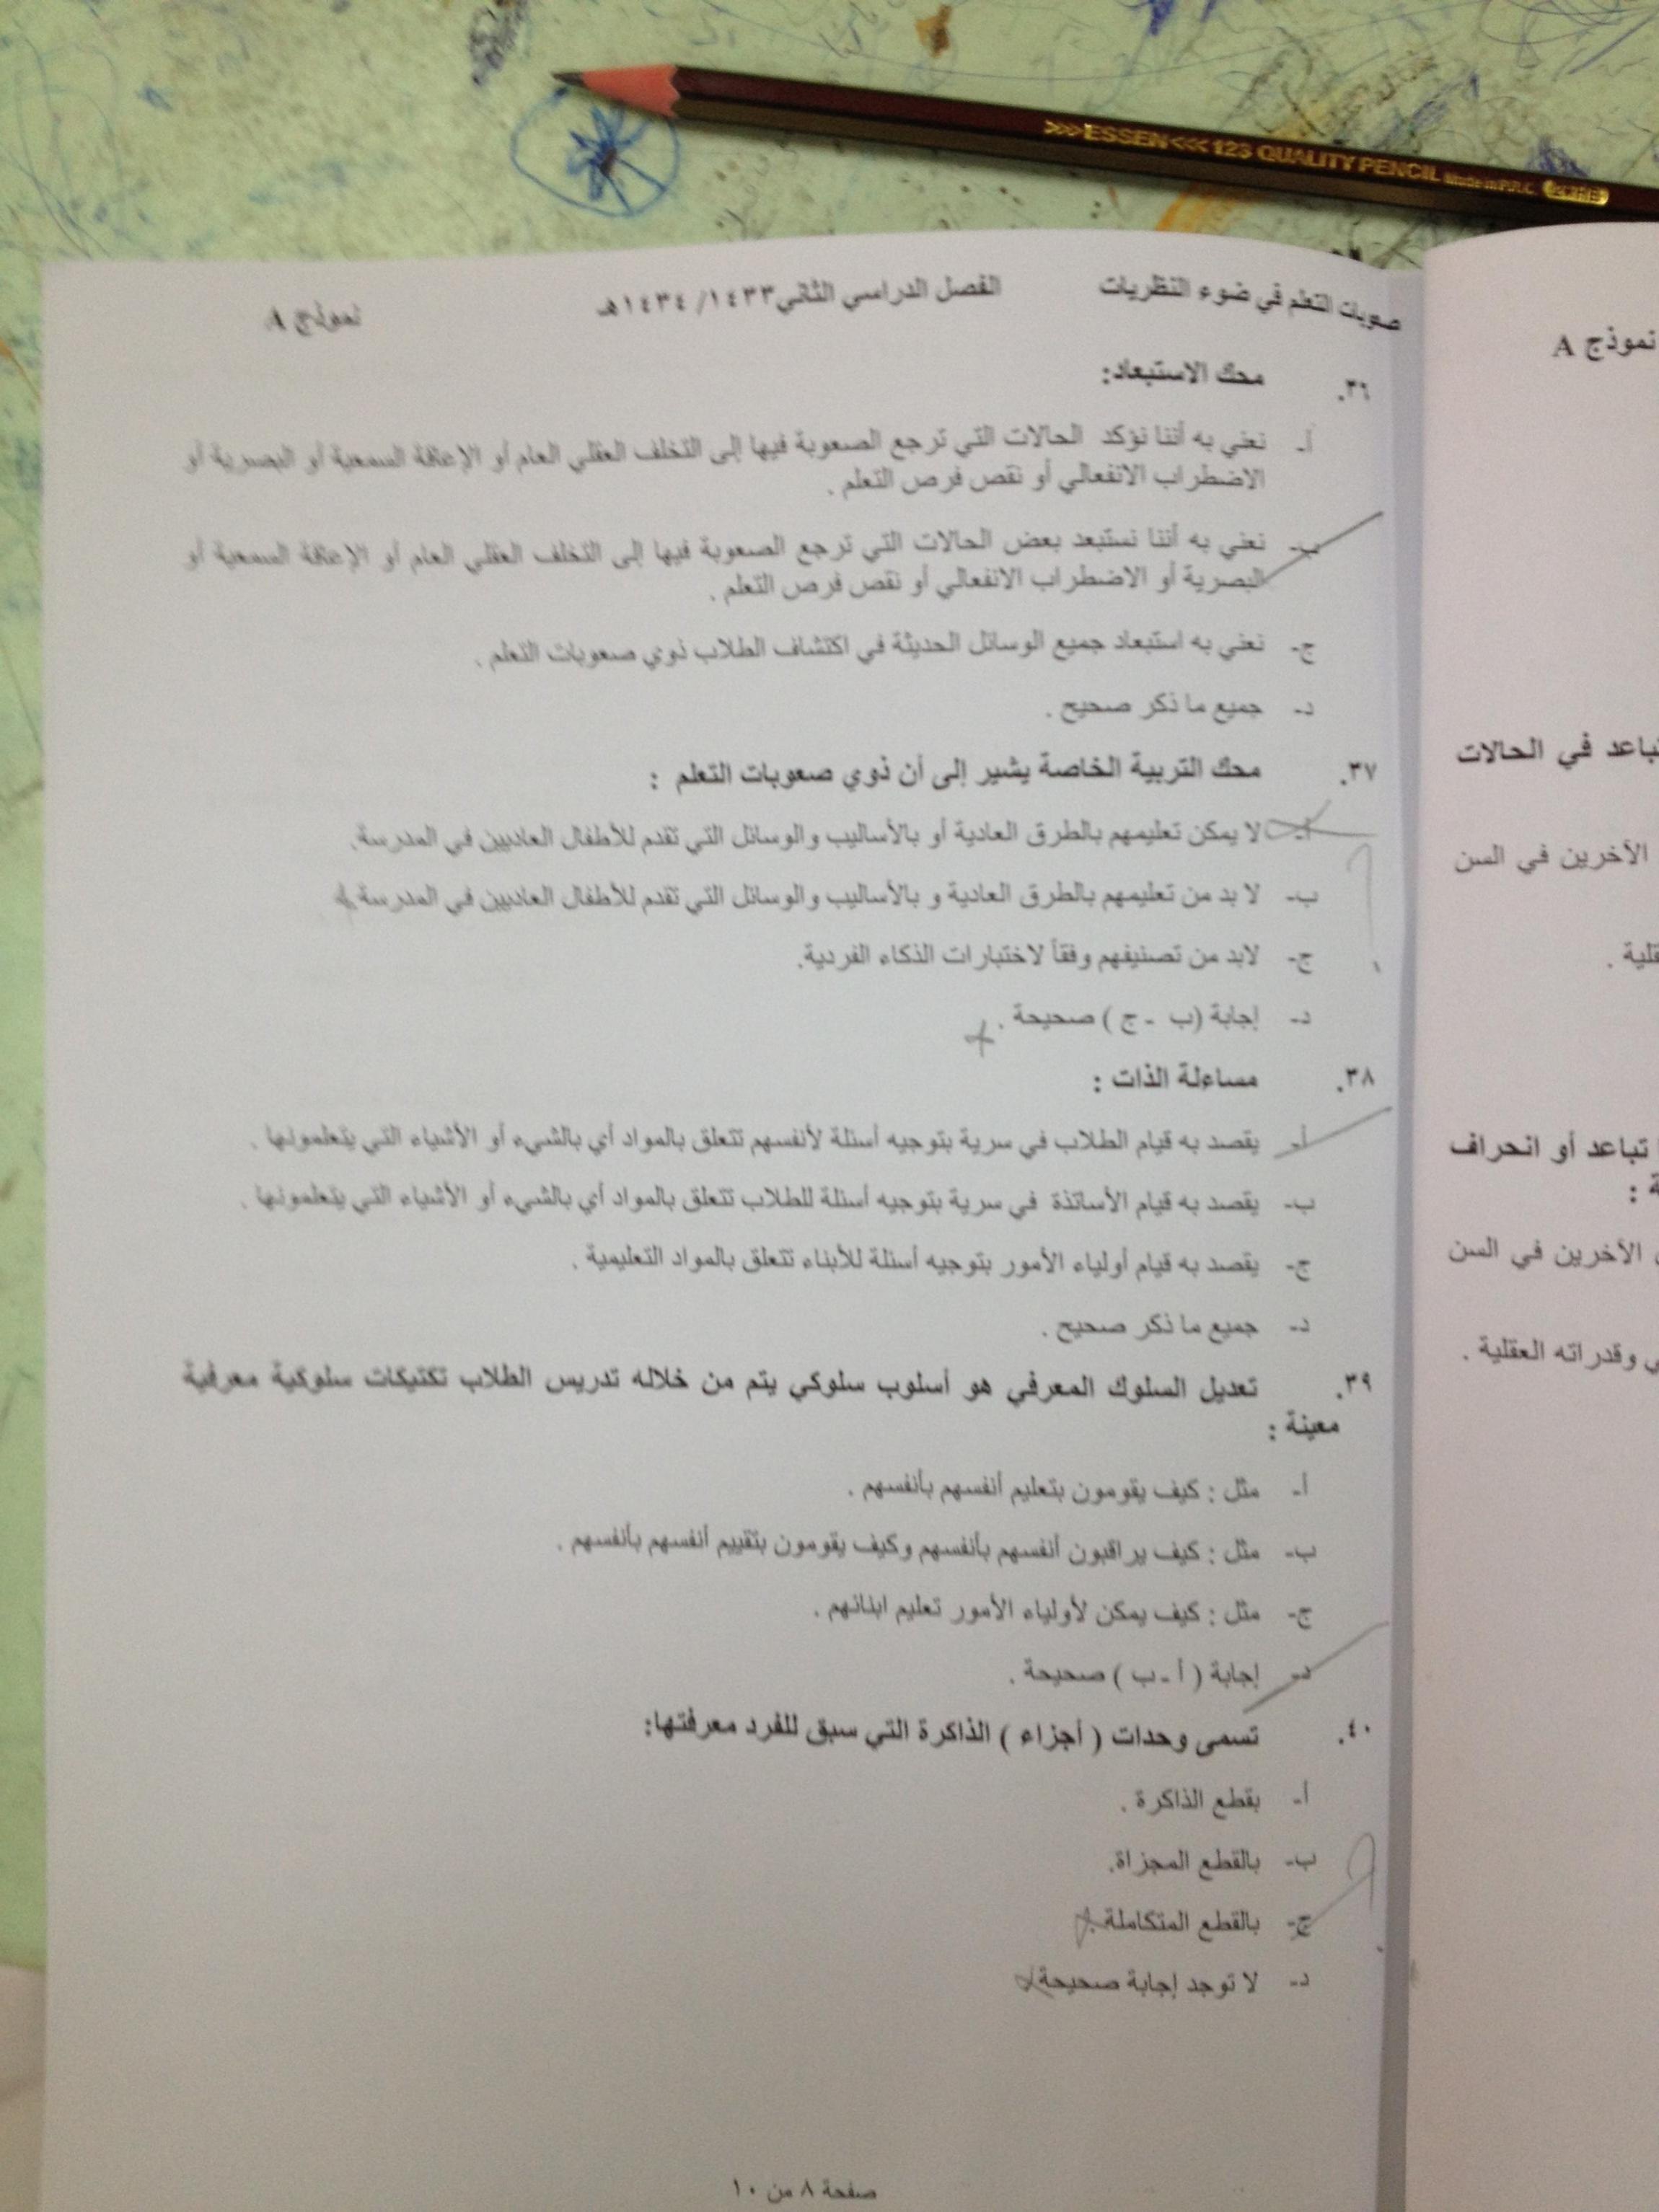 >>>ESSEN<<< 123 QUALITY PENCIL Made in P.R.C.
صعوبات التعلم في ضوء النظريات الفصل الدراسي الثاني ١٤٣٣/ ١٤٣٤هـ نموذج A
٣٦. محك الاستبعاد:
أ- نعني به أننا نؤكد الحالات التي ترجع الصعوبة فيها إلى التخلف العقلي العام أو الإعاقة السمعية أو البصرية أو
الاضطراب الانفعالي أو نقص فرص التعلم .
ب- نعني به أننا نستبعد بعض الحالات التي ترجع الصعوبة فيها إلى التخلف العقلي العام أو الإعاقة السمعية أو
البصرية أو الاضطراب الانفعالي أو نقص فرص التعلم .
ج- نعني به استبعاد جميع الوسائل الحديثة في اكتشاف الطلاب ذوي صعوبات التعلم .
د- جميع ما ذكر صحيح .
٣٧. محك التربية الخاصة يشير إلى أن ذوي صعوبات التعلم :
أ- لا يمكن تعليمهم بالطرق العادية أو بالأساليب والوسائل التي تقدم للأطفال العاديين في المدرسة.
ب- لا بد من تعليمهم بالطرق العادية و بالأساليب والوسائل التي تقدم للأطفال العاديين في المدرسة
ج- لابد من تصنيفهم وفقاً لاختبارات الذكاء الفردية.
د- إجابة (ب - ج ) صحيحة .
٣٨. مساءلة الذات :
أ- يقصد به قيام الطلاب في سرية بتوجيه أسئلة لأنفسهم تتعلق بالمواد أي بالشيء أو الأشياء التي يتعلمونها .
ب- يقصد به قيام الأساتذة في سرية بتوجيه أسئلة للطلاب تتعلق بالمواد أي بالشيء أو الأشياء التي يتعلمونها .
ج- يقصد به قيام أولياء الأمور بتوجيه أسئلة للأبناء تتعلق بالمواد التعليمية .
د- جميع ما ذكر صحيح .
٣٩. تعديل السلوك المعرفي هو أسلوب سلوكي يتم من خلاله تدريس الطلاب تكتيكات سلوكية معرفية
معينة :
أ- مثل : كيف يقومون بتعليم أنفسهم بأنفسهم .
ب- مثل : كيف يراقبون أنفسهم بأنفسهم وكيف يقومون بتقييم أنفسهم بأنفسهم .
ج- مثل : كيف يمكن لأولياء الأمور تعليم ابنائهم .
د- إجابة ( أ - ب ) صحيحة .
٤٠. تسمى وحدات ( أجزاء ) الذاكرة التي سبق للفرد معرفتها:
أ- بقطع الذاكرة .
ب- بالقطع المجزاة.
ج- بالقطع المتكاملة
د- لا توجد إجابة صحيحة
صفحة ٨ من ١٠
نموذج A
تباعد في الحالات
الأخرين في السن
تباعد أو انحراف
الأخرين في السن
وقدراته العقلية .